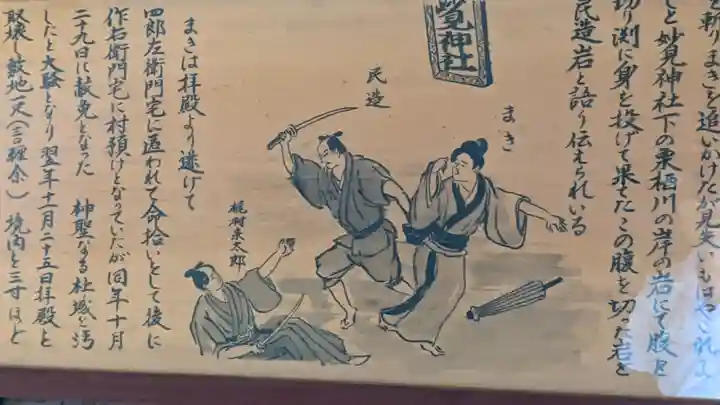 を斬りまきを追いかけたが見失いもはやこれ
しと妙見神社下の栗栖川の岸の岩にて腹を
切り渕に身を投げて果てたこの腹を切った岩を
民造岩と語り伝えられいる
見神社
まき
民造
梶村
太郎
まきは拝殿より逃げて
四郎左衛門宅に追われて命拾いとして後に
作右衛門宅に村預けとなっていたが同年十月
二十九日に赦免となった 神聖なる社域を汚
したと大騒となり翌年十一月二十五日拝殿と
取壊し敷地一天(言種余)境内と三寸ほど